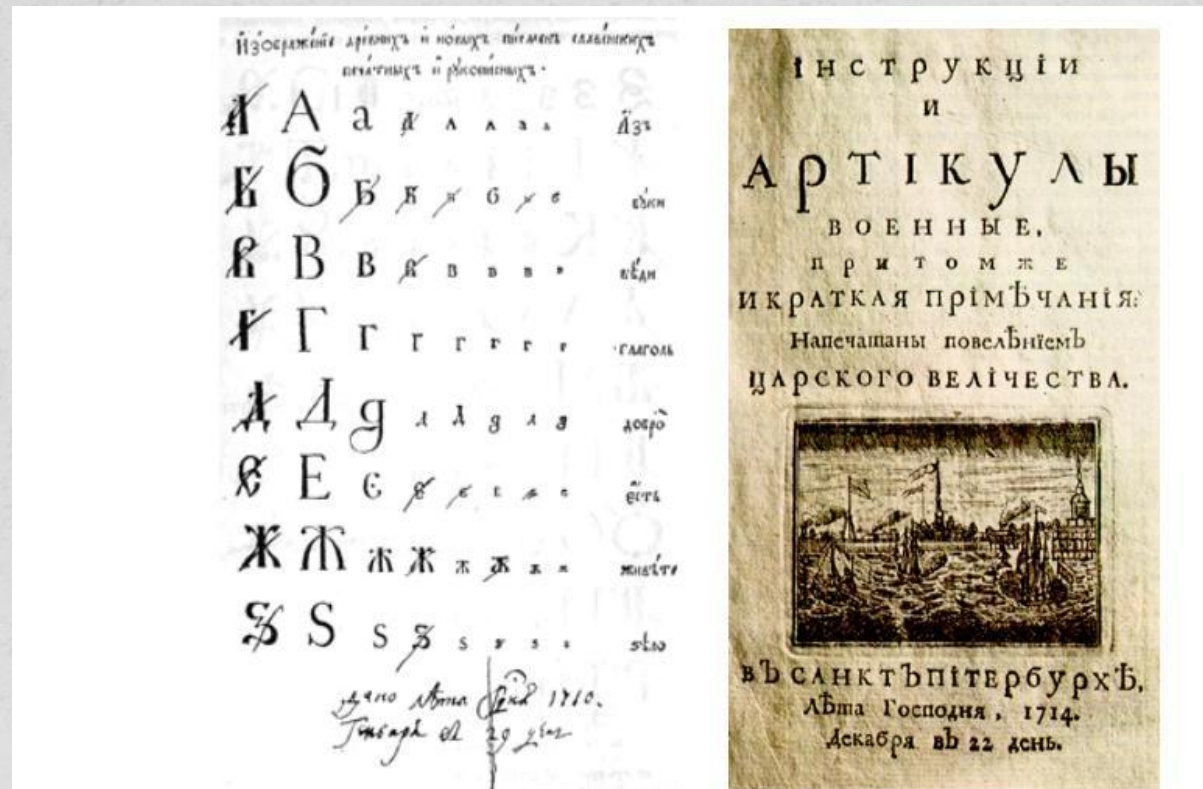 Изображенїе древнихъ и новыхъ писменъ славенскихъ
печатныхъ и рукописныхъ.
А А а А А А а а Азъ
Б Б Б Б Б Б Б Б буки
В В В В В В В В вѣди
Г Г Г Г Г Г Г Г глаголь
Д Д д Д Д д д д добро
Е Е Є Е Е Е Е Е есть
Ж Ж Ж Ж Ж Ж Ж Ж живѣте
Ѕ Ѕ Ѕ Ѕ Ѕ Ѕ Ѕ Ѕ ѕѣло
дано лѣта 1710.
Генваря 29 дня
ІНСТРУКЦІИ
И
АРТІКУЛЫ
ВОЕННЫЕ,
ПРИТОМЖЕ
ИКРАТКАЯ ПРІМѢЧАНІЯ:
Напечатаны повелѣнїемЪ
ЦАРСКОГО ВЕЛІЧЕСТВА.
ВЪ САНКТЪПІТЕРБУРХѢ,
Лѣта Господня, 1714.
Декабря вЪ 22 день.